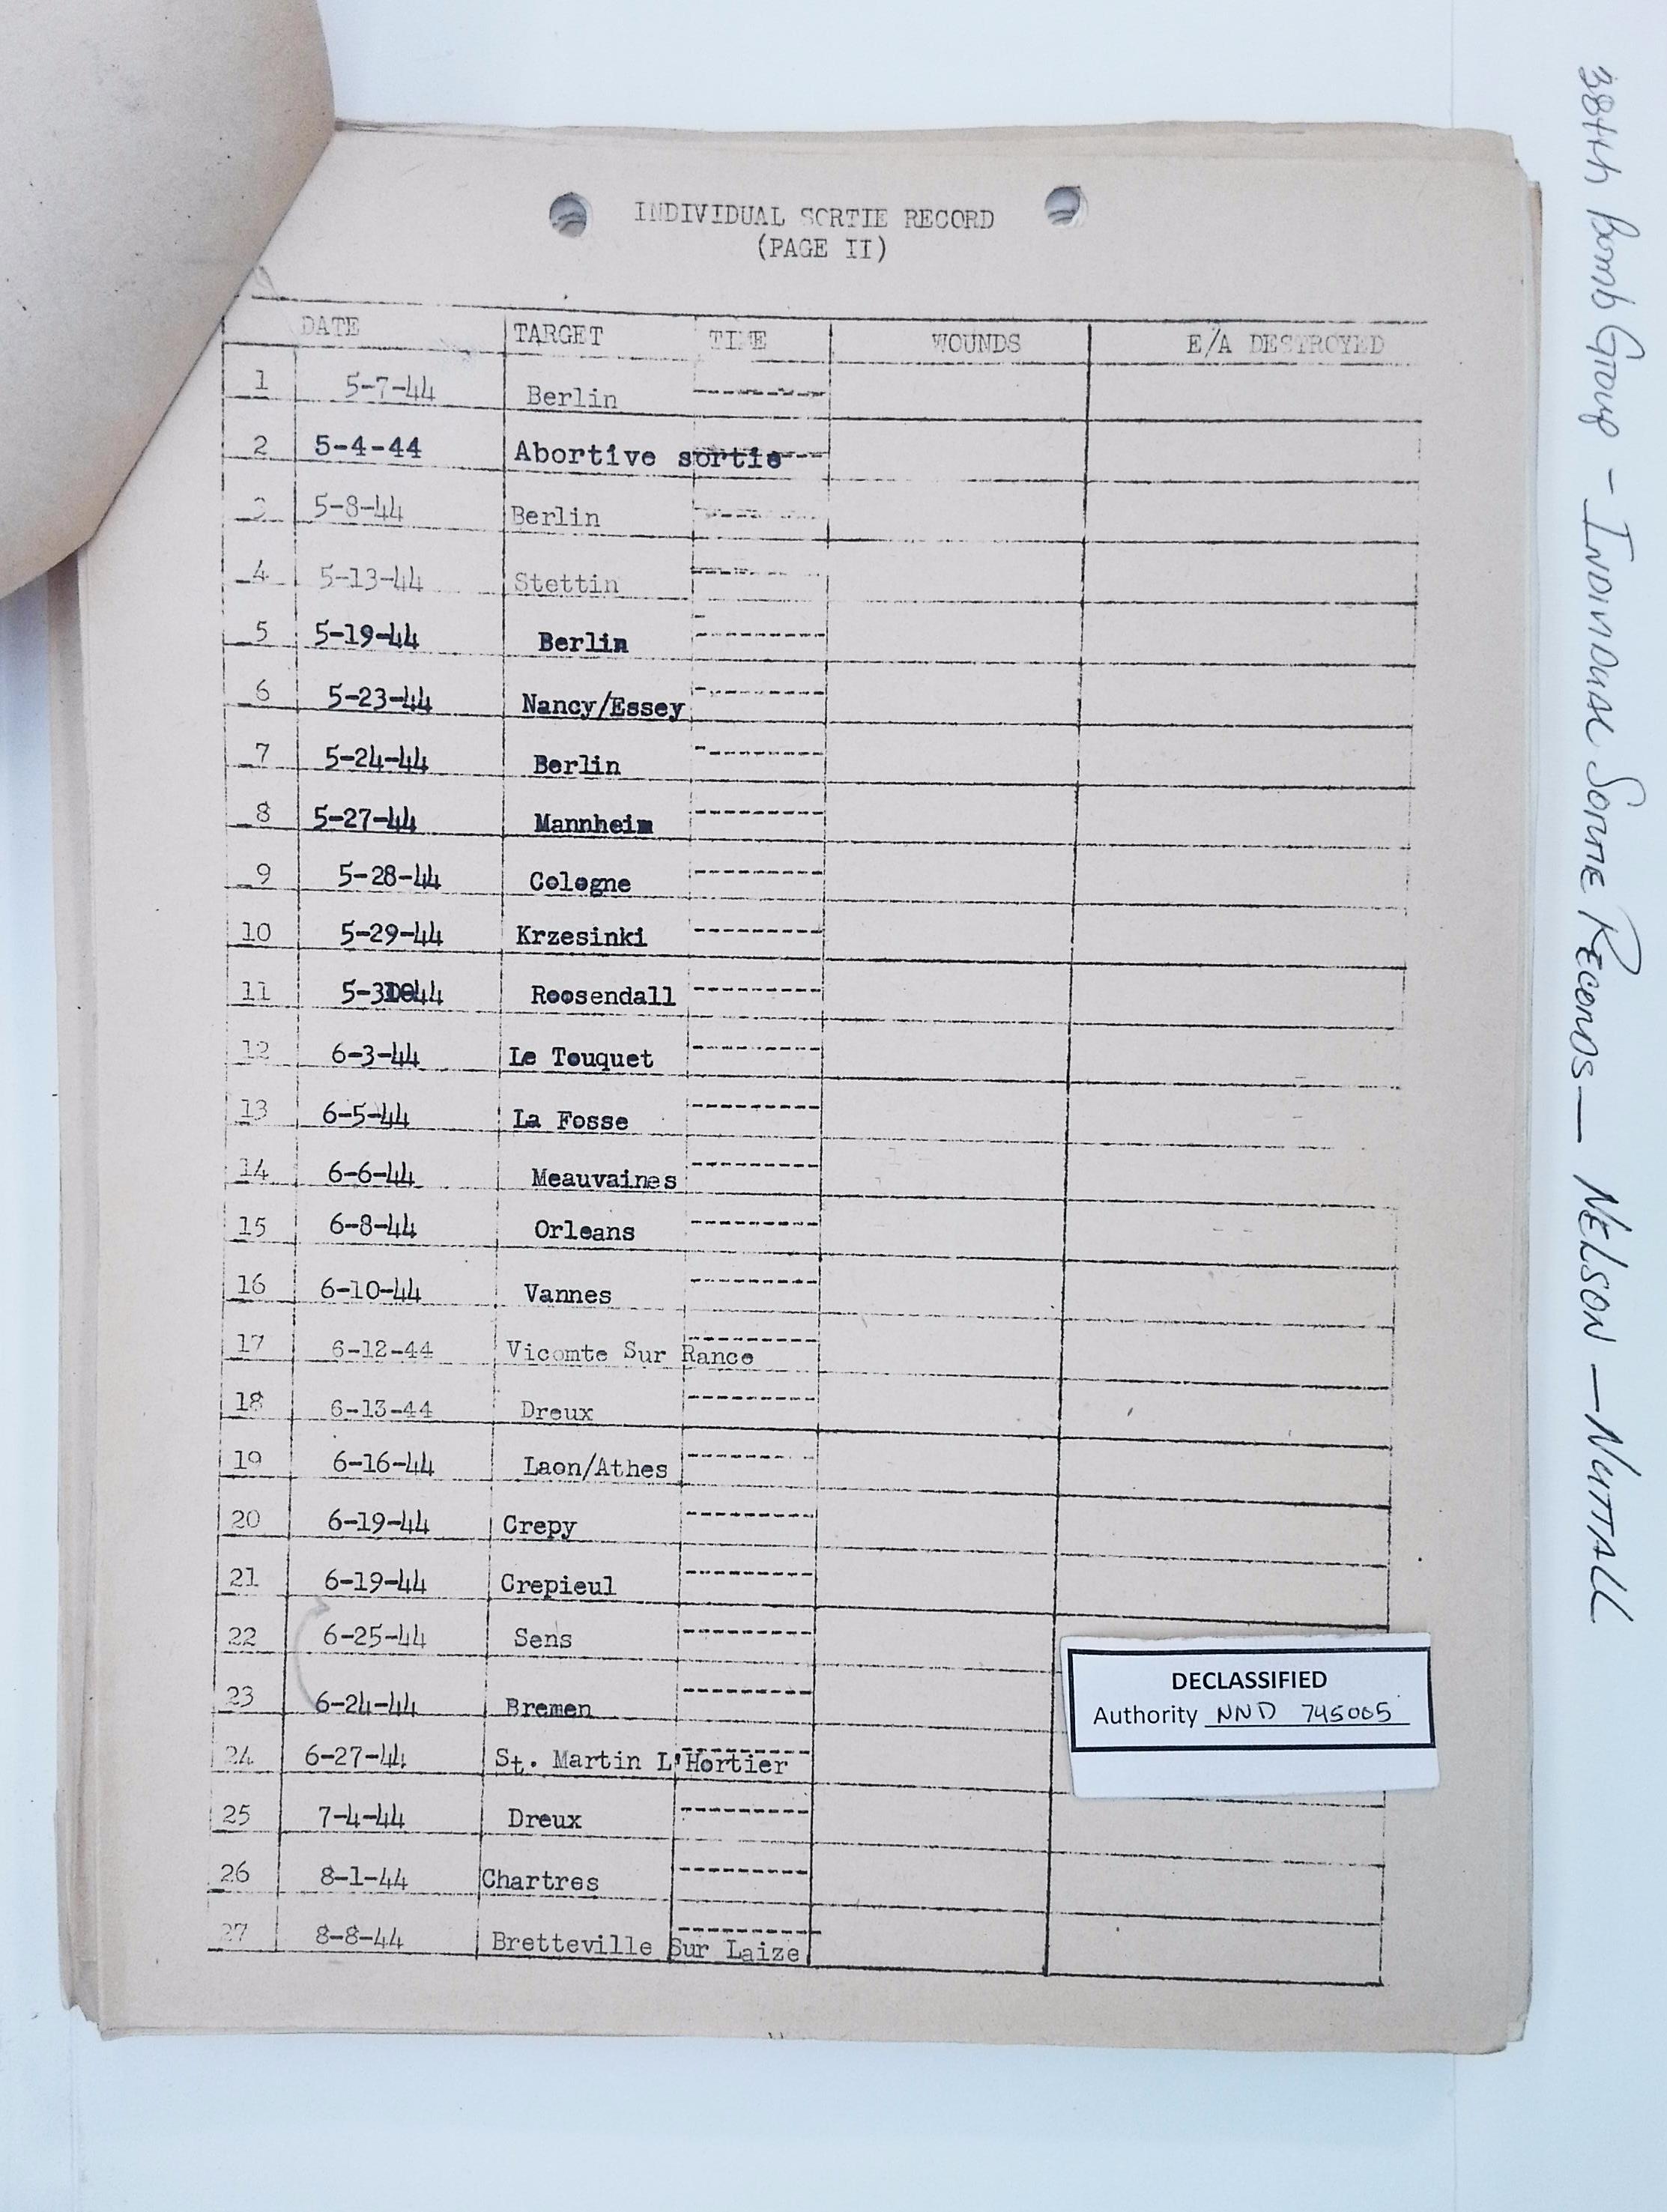 INDIVIDUAL SORTIE RECORD
(PAGE II)
DATE TARGET TIME WOUNDS E/A DESTROYED
1 5-7-44 Berlin ---------
2 5-4-44 Abortive sortie ---
3 5-8-44 Berlin ---------
4 5-13-44 Stettin ---------
5 5-19-44 Berlin ---------
6 5-23-44 Nancy/Essey ---------
7 5-24-44 Berlin ---------
8 5-27-44 Mannheim ---------
9 5-28-44 Cologne ---------
10 5-29-44 Krzesinki ---------
11 Roosendall ---------
12 6-3-44 Le Touquet ---------
13 6-5-44 La Fosse ---------
14 6-6-44 Meauvaines ---------
15 6-8-44 Orleans ---------
16 6-10-44 Vannes ---------
17 6-12-44 Vicomte Sur Rance ---------
18 6-13-44 Dreux ---------
19 6-16-44 Laon/Athes ---------
20 6-19-44 Crepy ---------
21 6-19-44 Crepieul ---------
22 6-25-44 Sens ---------
23 6-24-44 Bremen ---------
24 6-27-44 St. Martin L'Hortier ---------
25 7-4-44 Dreux ---------
26 8-1-44 Chartres ---------
27 8-8-44 Bretteville Sur Laize ---------
DECLASSIFIED
Authority NND 745005
38th Bomb Group - Individual Sortie Records — NELSON — NUTTALL